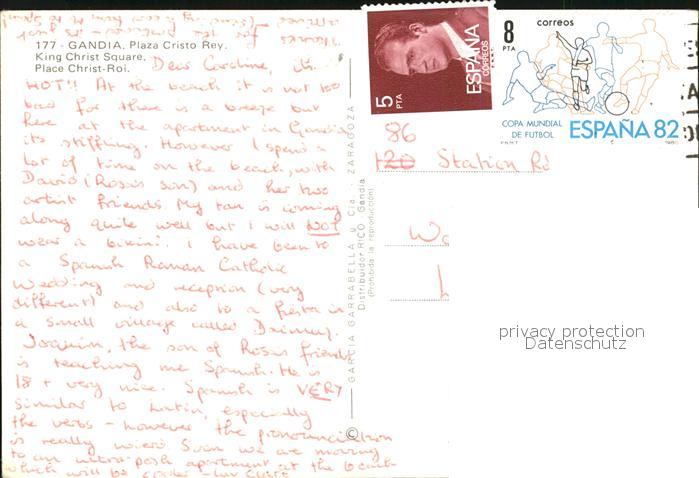 177 - GANDIA. Plaza Cristo Rey.
King Christ Square.
Place Christ-Roi.
Dear Caroline, it's
HOT!! At the beach it is not too
bad for there is a breeze but
here at the apartment in Gandia
its stiffling. However I spend a
lot of time on the beach, with
David (Rosa's son) and her two
artist friends. My tan is coming
along quite well but I will NOT
wear a bikini. I have been to
a Spanish Roman Catholic
wedding and reception (very
different) and also to a fiesta in
a small village called Daimuz.
Joaquin, the son of Rosa's friends
is teaching me Spanish. He is
18 + very nice. Spanish is VERY
similar to Latin, especially
the verbs - however the pronounciation
is really weird. Soon we are moving
to an ultra-posh apartment at the beach
which will be cooler - luv Clare
GARCIA GARRABELLA y Cia. - ZARAGOZA
Distribuidor RICO - Gandia
(Prohibida la reproducción)
©
5
PTA
ESPAÑA
CORREOS
8
PTA
correos
COPA MUNDIAL
DE FUTBOL
ESPAÑA 82
86
120 Station Rd
privacy protection
Datenschutz